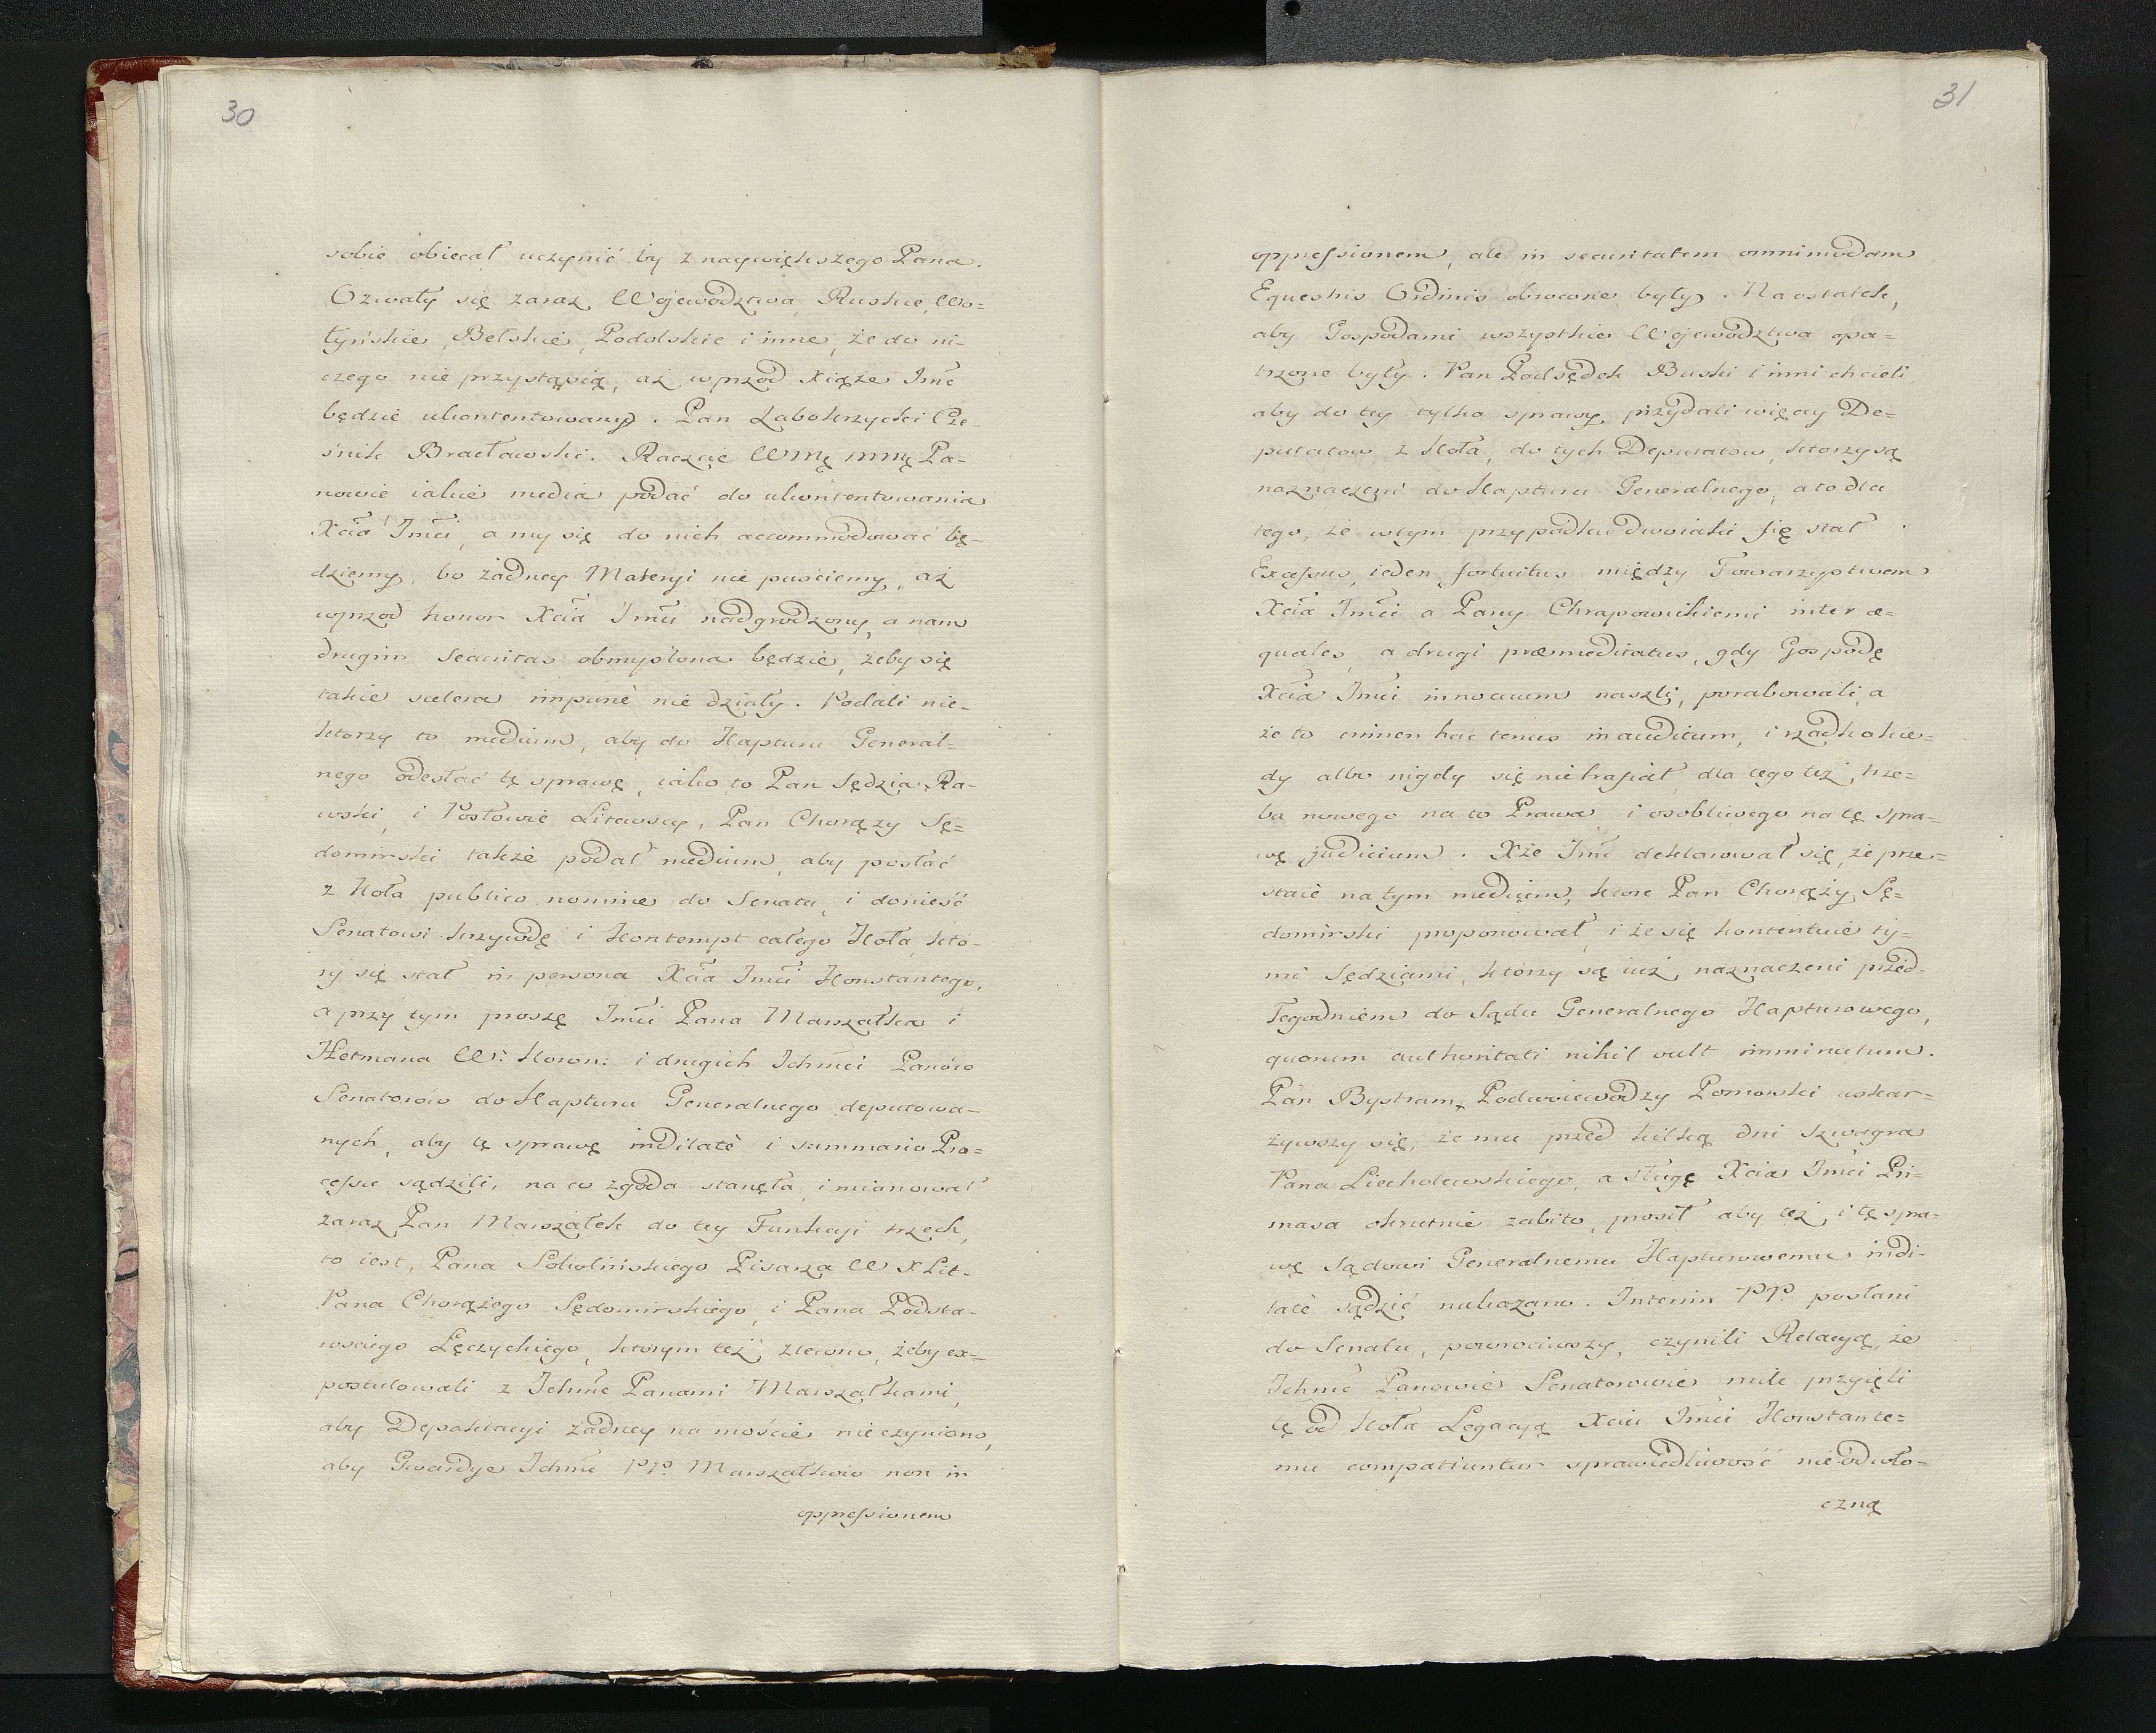 30
sobie obiecał uczynić by z naywiększego Pana.
Ozwały się zaraz Wojewodztwa, Ruskie, Wo=
łyńskie, Bełskie, Podolskie i inne, że do ni-
czego nie przystąpią, aż wprzod Xiąże Imć
będzie ukontentowany. Pan Łabokrzycki Cze-
śnik Bracławski. Raczcie WMę mmę Pa-
nowie iakie media podać do ukontentowania
Xcia Imci, a my się do nich accommodować bę-
dziemy, bo żadney Materyi nie puściemy, aż
wprzod honor Xcia Imci nadgrodzony, a nam
drugim Securitas obmyślona będzie, żeby się
takie scelera impunè nie działy. Podali nie-
ktorzy to medium, aby do Kapturu General=
nego odesłać tę sprawę, iako to Pan Sędzia Ra-
wski, i Posłowie Litewscy, Pan Chorąży Sę=
domirski także podał medium, aby posłać
z Koła publico nomine do Senatu, i donieść
Senatowi krzywdę i Kontempt całego Koła, kto-
ry się stał in persona Xcia Imci Konstantego,
a przy tym proszę Imci Pana Marszałka i
Hetmana W: Koron: i drugich Ichmci Panów
Senatorów do Kapturu Generalnego deputowa-
nych, aby tę sprawę indilatè i summario Pro=
cessu sądzili, na co zgoda stanęła, i mianował
zaraz Pan Marszałek do tey Funkcyi trzech,
to iest, Pana Sokolińskiego Pisarza W X Lit-
Pana Chorążego Sędomirskiego, i Pana Podsta-
wściego Łęczyckiego, ktorym też zlecono, żeby ex-
postulowali z Ichmć Panami Marszałkami,
aby Depaktacyi żadney na moście nie czyniono,
aby Gwardye Ichmć PP. Marszałków non in
oppressionem
31
oppressionem, ale in securitatem omnimodam
Equestris Ordinis obrocone były. Na ostatek,
aby Gospodami wszystkie Wojewodztwa opa=
trzone były. Pan Podsędek Buski i inni chcieli,
aby do tey tylko sprawy, przydali więcey De=
putatow z Koła, do tych Deputatow, ktorzy są
naznaczeni do Kapturu Generalnego, a to dla
tego, że w tym przypadku dwoiaki się stał
Excessus, ieden fortuitus między Towarzystwem
Xcia Imci a Pany Chrapowickiemi inter æ=
quales, a drugi præmeditatus, gdy Gospodę
Xcia Imci innocuum naszli, porabowali, a
że to crimen hactenus inauditum, i rzadko kie=
dy albo nigdy się nie trafiał, dla tego też, trze=
ba nowego na to Prawa i osobliwego na tę spra=
wę judicium. Xże Imć deklarował się, że prze=
staie na tym medium, ktore Pan Chorąży, Sę=
domirski proponował, i że się kontentuie ty=
mi Sędziami, ktorzy są iuż naznaczeni przed-
Tegodniem do Sądu Generalnego Kapturowego,
quorum authoritati nihil vult imminutum.
Pan Bystram, Podwoiewodzy Pomorski uskar=
żywszy się, że mu przed kilką dni szwagra
Pana Liecholewskiego, a sługę Xcia Imci Pri=
masa okrutnie zabito, prosił aby też i tę spra=
wę Sądowi Generalnemu Kapturowemu indi-
latè sądzić nakazano. Interim PP. posłani
do Senatu, powrociwszy, czynili Relacyą, że
Ichmć Panowie Senatorowie mile przyięli
tę od Koła Legacyą Xciu Imci Konstante=
mu compatiuntur sprawiedliwość nieodwło-
czną